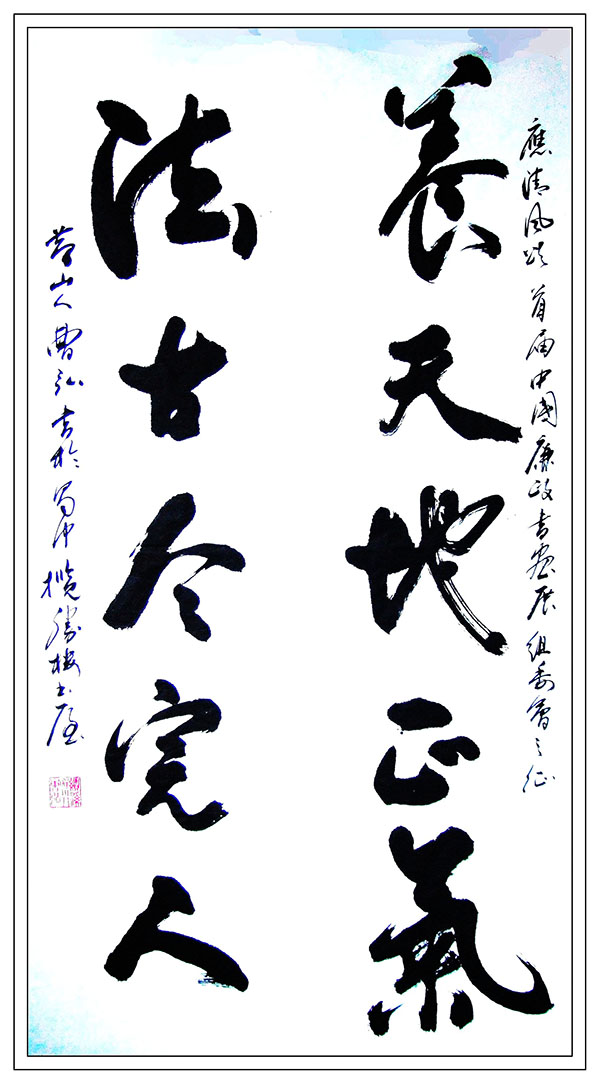 應清風頌首届中國廉政書畫展組委會之征
養天地正氣
法古今完人
山人曹弘書於蜀中攬勝樓書屋